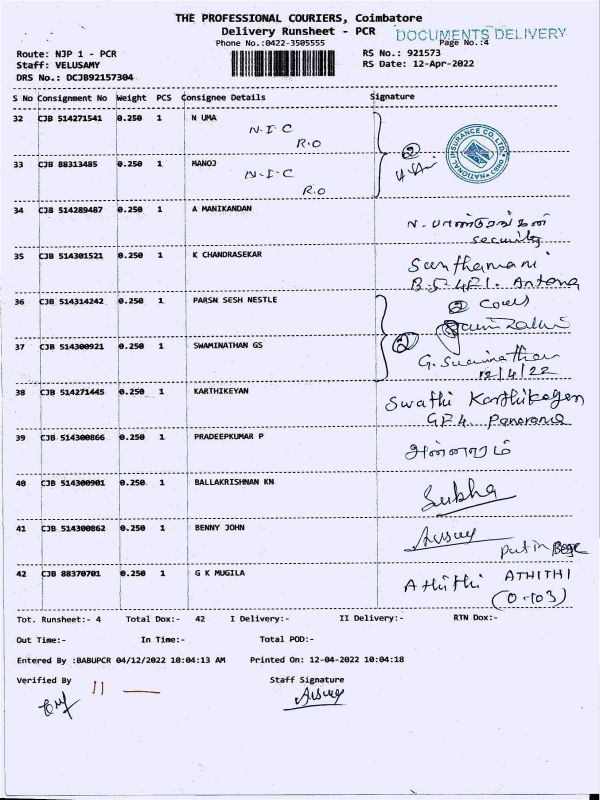 THE PROFESSIONAL COURIERS, Coimbatore
Delivery Runsheet - PCR
DOCUMENTS DELIVERY
Phone No.:0422-3505555
Page No.:4
Route: NJP 1 - PCR
RS No.: 921573
Staff: VELUSAMY
RS Date: 12-Apr-2022
DRS No.: DCJB92157304
S No Consignment No Weight PCS Consignee Details Signature
32 CJB 514271541 0.250 1 N UMA
N.I.C
R.O
NATIONAL INSURANCE CO. LTD.
33 CJB 88313485 0.250 1 MANOJ
2
N.I.C
R.O
34 CJB 514289487 0.250 1 A MANIKANDAN
N. பாண்டுரங்கன்
Security
35 CJB 514301521 0.250 1 K CHANDRASEKAR
Santhamani
B-5-4F1. Antona
36 CJB 514314242 0.250 1 PARSN SESH NESTLE
2 Covers
37 CJB 514300921 0.250 1 SWAMINATHAN GS
2 G. Swaminathan
12/4/22
38 CJB 514271445 0.250 1 KARTHIKEYAN
Swathi Karthikeyen
GF4. Panorama
39 CJB 514300866 0.250 1 PRADEEPKUMAR P
40 CJB 514300901 0.250 1 BALLAKRISHNAN KN
Subha
41 CJB 514300862 0.250 1 BENNY JOHN
put in
42 CJB 88370701 0.250 1 G K MUGILA
Athithi ATHITHI
(O-103)
Tot. Runsheet:- 4 Total Dox:- 42 I Delivery:- II Delivery:- RTN Dox:-
Out Time:- In Time:- Total POD:-
Entered By :BABUPCR 04/12/2022 10:04:13 AM Printed On: 12-04-2022 10:04:18
Verified By Staff Signature
11 —